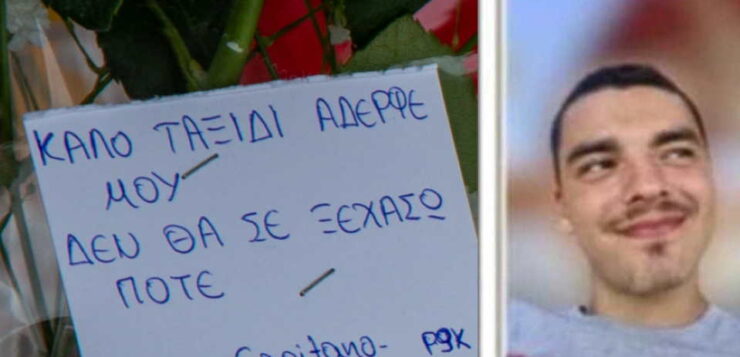 ΚΑΛΟ ΤΑΞΙΔΙ ΑΔΕΡΦΕ
ΜΟΥ
ΔΕΝ ΘΑ ΣΕ ΞΕΧΑΣΩ
ΠΟΤΕ
Capitano- P9K